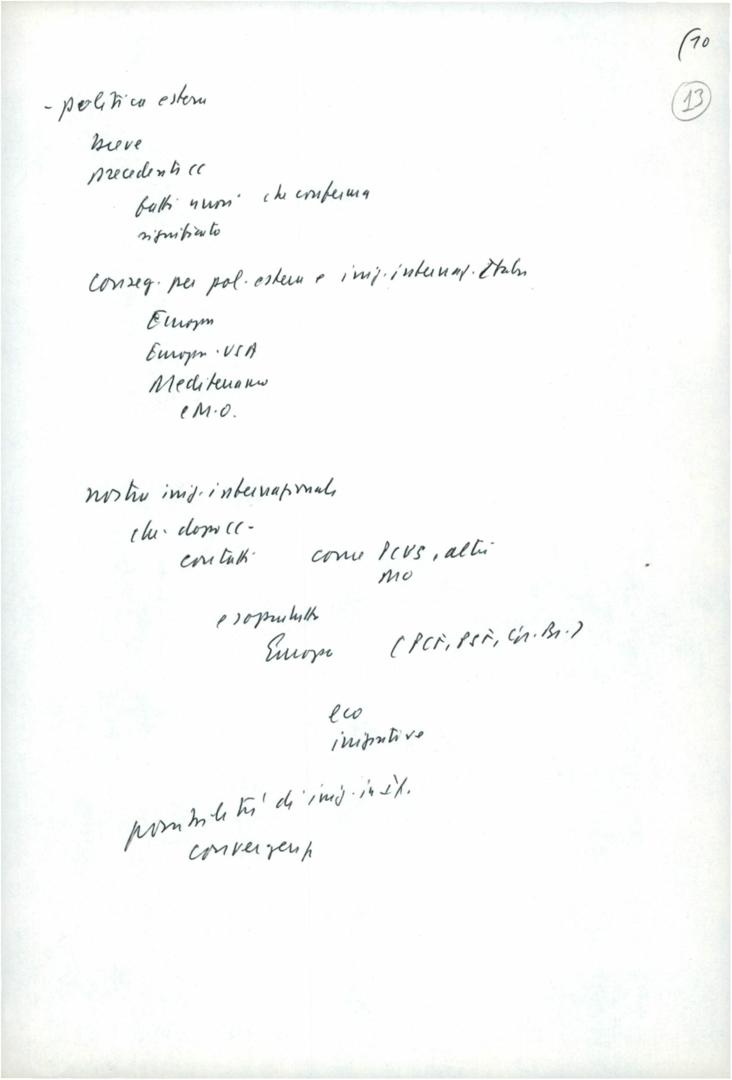 (10
13
- politica estera
breve
precedenti cc
fatti nuovi che conferma
significato
conseg. per pol. estera e iniz. internaz. Italia
Europa
Europa - USA
Mediterraneo
e M.O.
nostra iniz. internazionale
che dopo cc -
contatti come PCUS, altri
MO
e soprattutto
Europa (PCF, PSF,
eco
iniziative
possibilità di iniz. in It.
convergenz